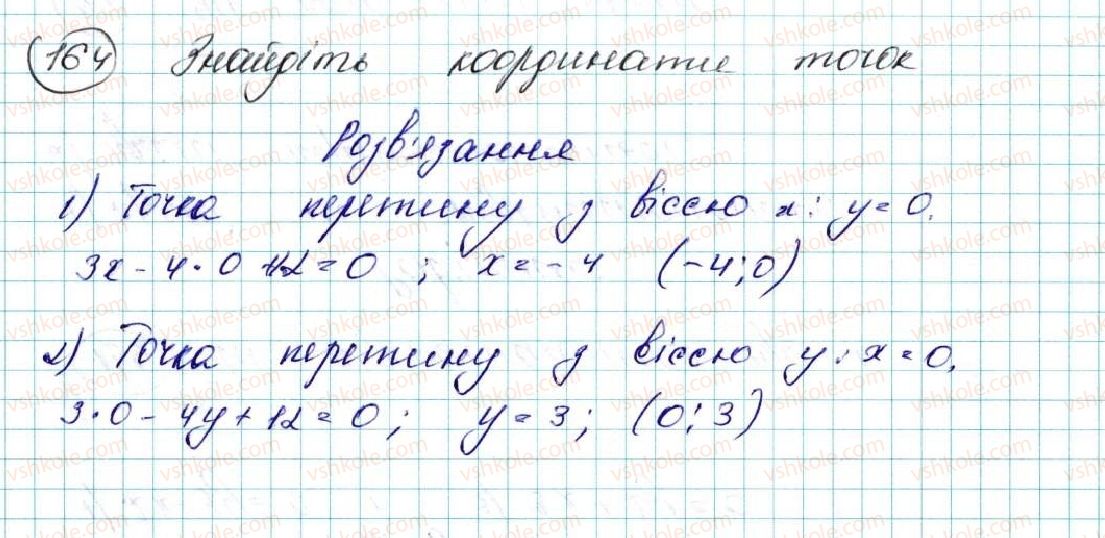 164 Знайдіть координати точок
Розв'язання
1) Точка перетину з віссю x: y=0.
3x - 4·0 +12=0 ; x=-4 (-4;0)
2) Точка перетину з віссю y: x=0.
3·0 - 4y + 12 = 0; y = 3; (0;3)